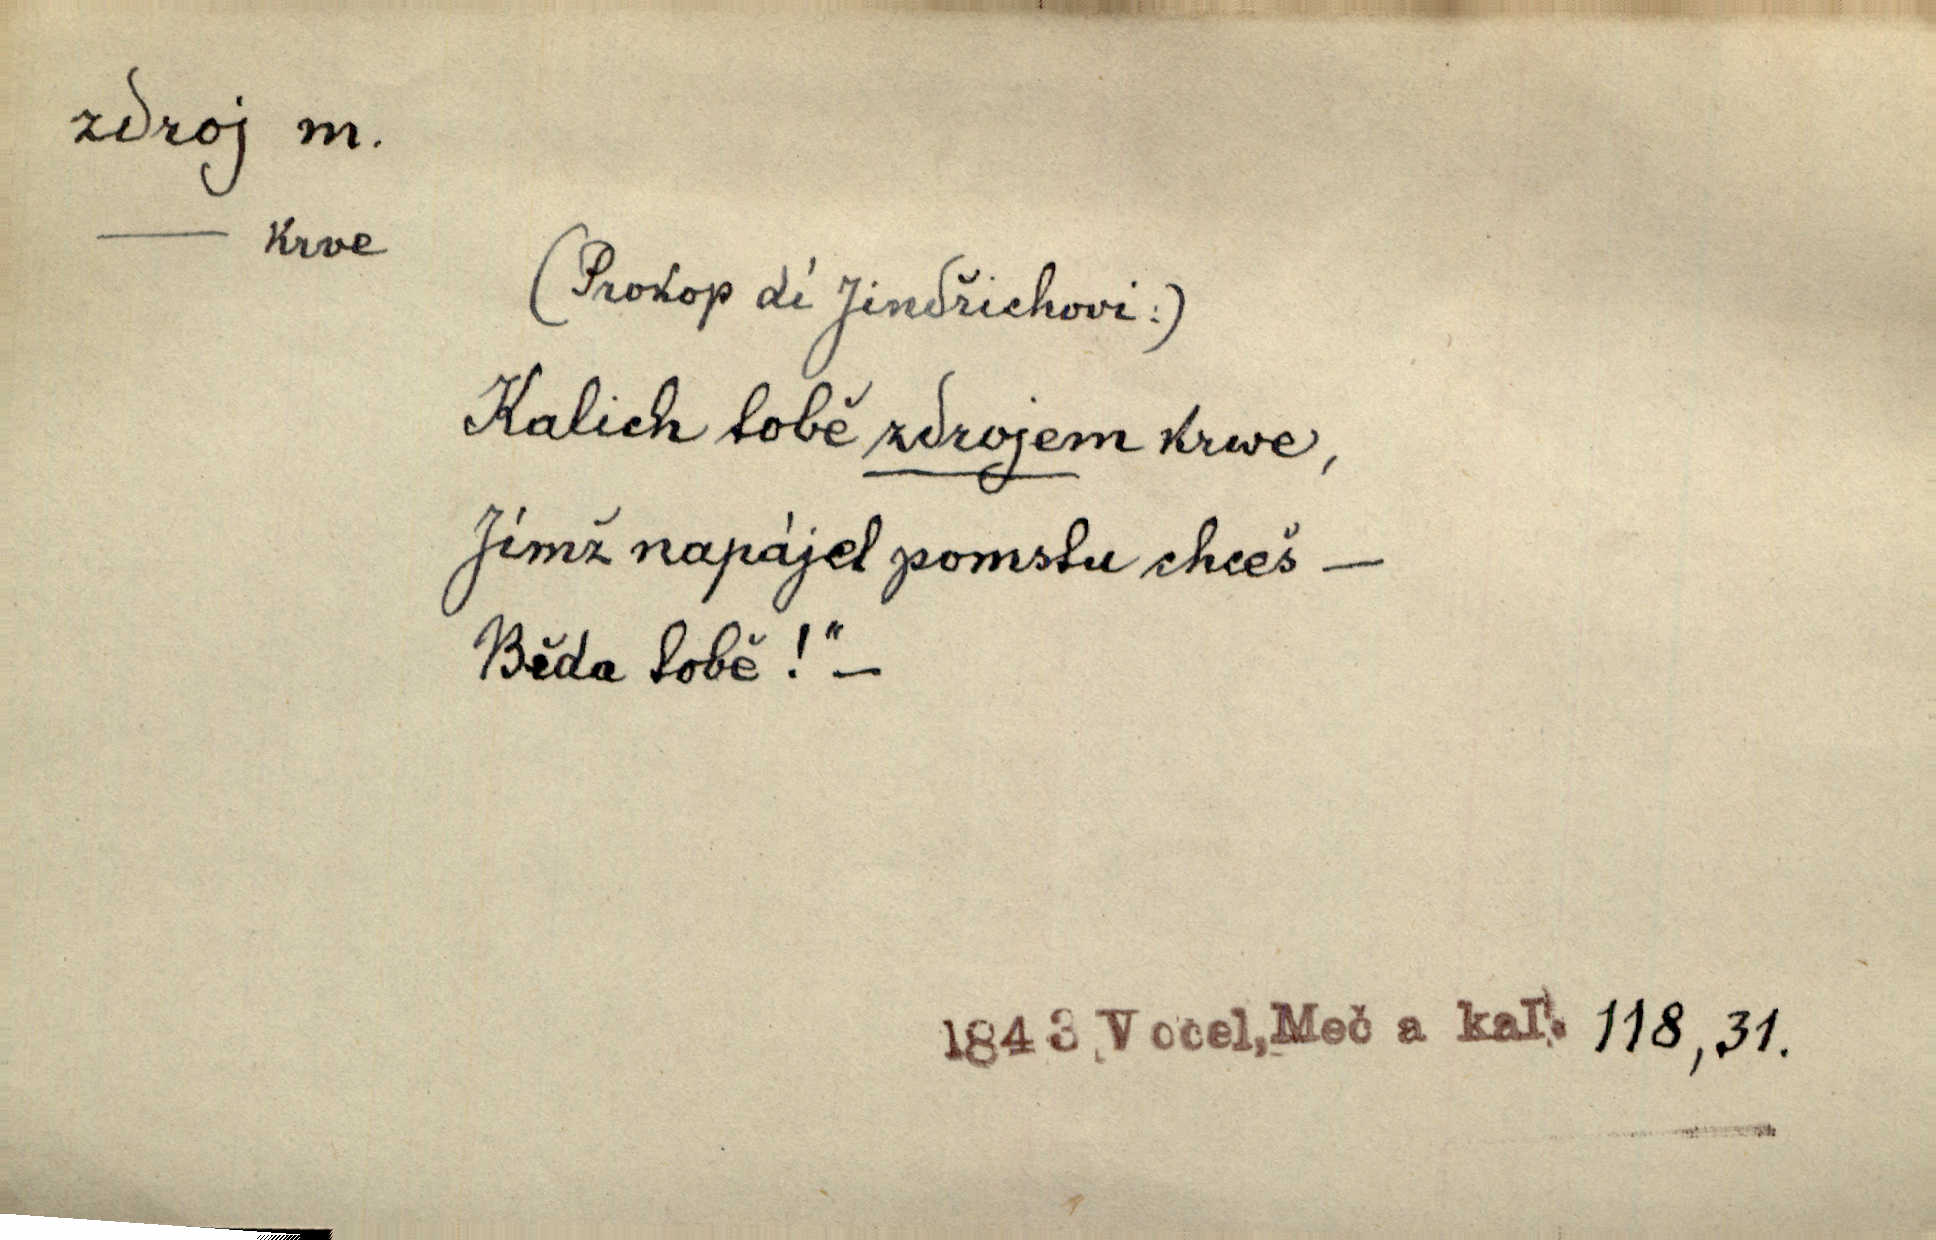 zdroj m.
— krve
(Prokop dí Jindřichovi:)
Kalich tobě zdrojem krwe,
Jímž napájet pomstu chceš —
Běda tobě!“ —
1843 Vocel, Meč a kal. 118, 31.